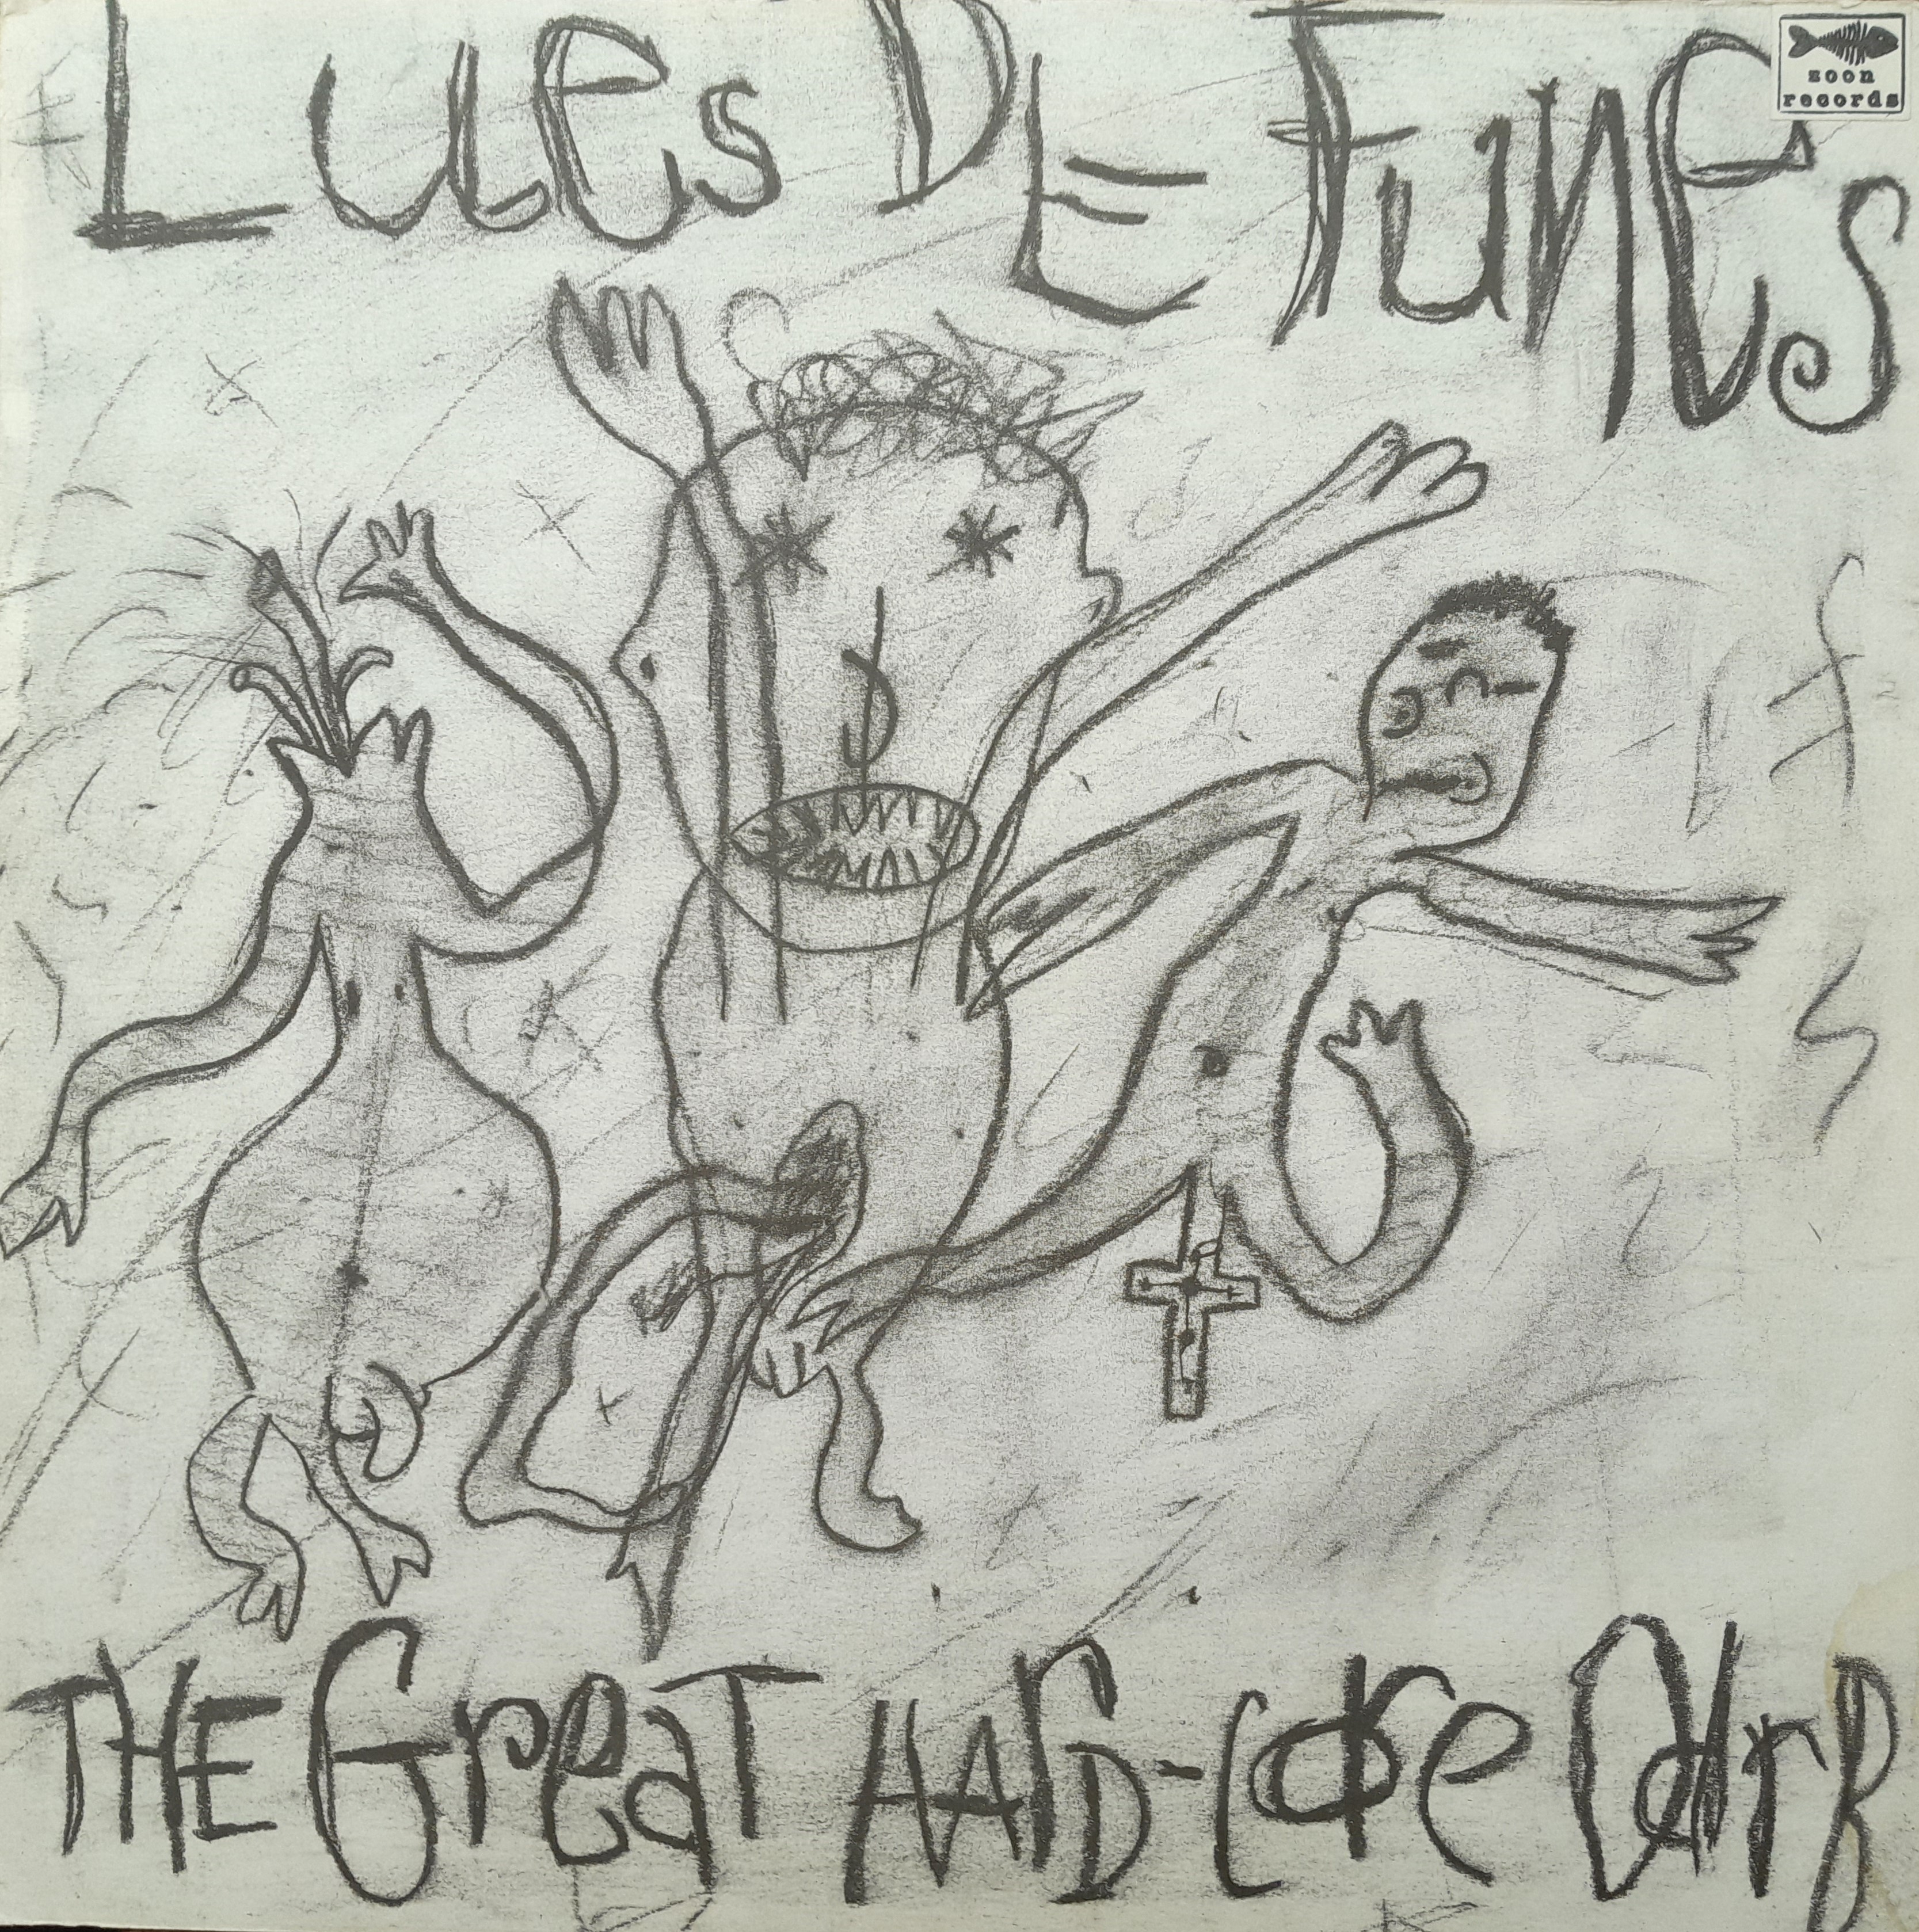 LuEs DE FunEs
soon
records
THE GreaT HArD-CORe